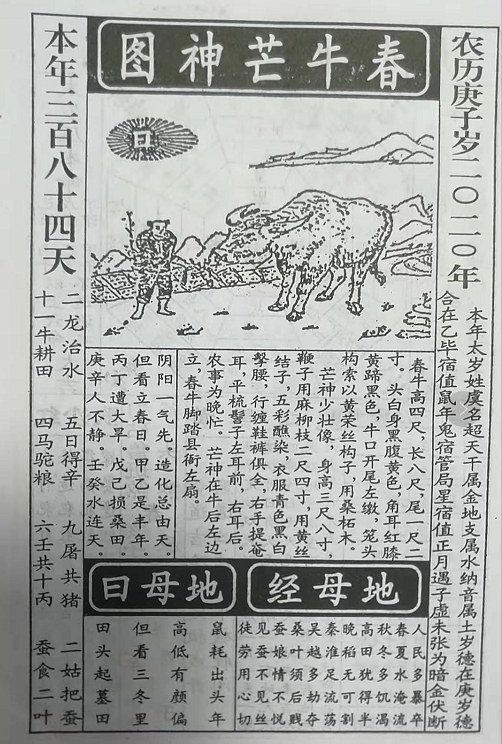 春牛芒神图
农历庚子岁二〇二〇年
本年太岁姓虞名超天干属金地支属水纳音属土岁德在庚岁德
合在乙毕宿值鼠年鬼宿管局星宿值正月遇子虚未张为暗金伏断
日
春牛高四尺，长八尺，尾一尺二
寸。头白身黑腹黄色，角耳红膝
黄蹄黑色，牛口开尾左缴，笼头
构索以黄荣丝构子，用桑柘木。
芒神少壮像，身高三尺八寸，
鞭子用麻柳枝二尺四寸，用黄丝
结子，五彩醮染，衣服青色黑白
腰，行缠鞋裤俱全，右手提罨
耳，平梳髻子左耳前，右耳后。
农事为晚忙。芒神在牛后左边
立，春牛脚踏县衙左扇。
阴阳一气先。造化总由天。
但看立春日。甲乙是丰年。
丙丁遭大旱。戊己损桑田。
庚辛人不静。壬癸水连天。
地母经
人民多暴卒
春夏水淹流
秋冬多饥渴
高田犹得半
晚稻无可割
秦淮足流荡
吴越多劫夺
桑叶须后贱
蚕娘情不悦
见蚕不见丝
徒劳用心切
地母曰
鼠耗出头年
高低有颜偏
但看三冬里
田头起墓田
本年三百八十四天
二龙治水 五日得辛 九屠共猪 二姑把蚕
十一牛耕田 四马驼粮 六壬共十丙 蚕食二叶